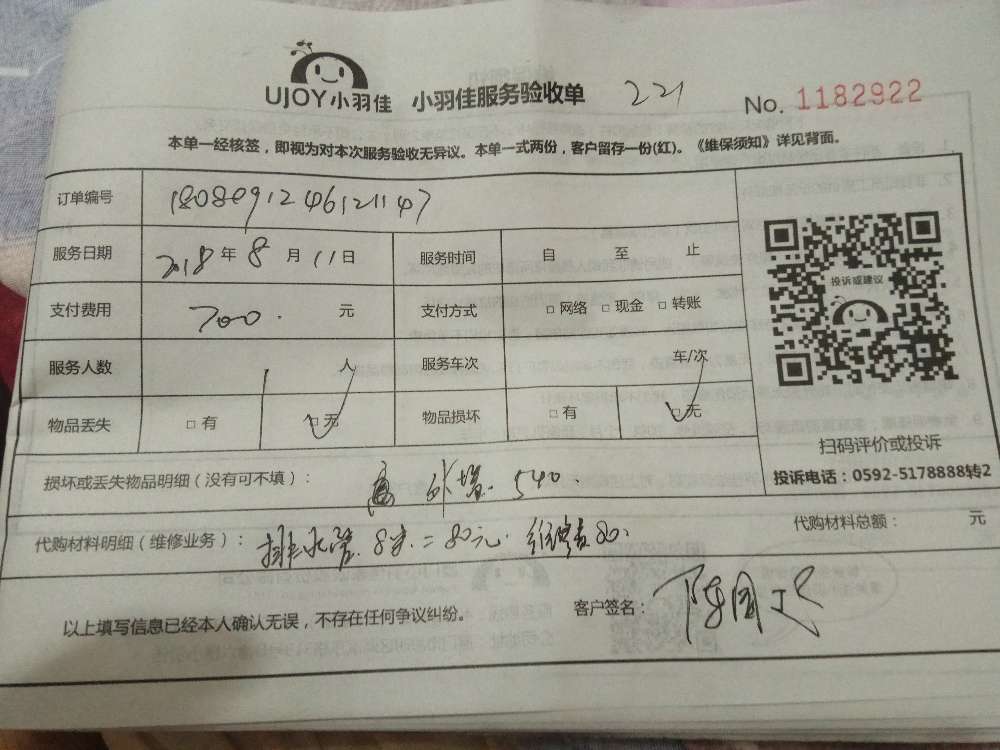 UJOY小羽佳 小羽佳服务验收单 221 No. 1182922
本单一经核签，即视为对本次服务验收无异议。本单一式两份，客户留存一份(红)。《维保须知》详见背面。
订单编号 1808091246121147
服务日期 2018年8月11日 服务时间 自 至 止
支付费用 700. 元 支付方式 □网络 □现金 □转账
投诉或建议
服务人数 1 人 服务车次 车/次
物品丢失 □有 □无 物品损坏 □有 □无
扫码评价或投诉
投诉电话：0592-5178888转2
损坏或丢失物品明细（没有可不填）： 外墙. 540
代购材料明细（维修业务）： 排水管. 8米=80元. 80. 代购材料总额： 元
以上填写信息已经本人确认无误，不存在任何争议纠纷。 客户签名：